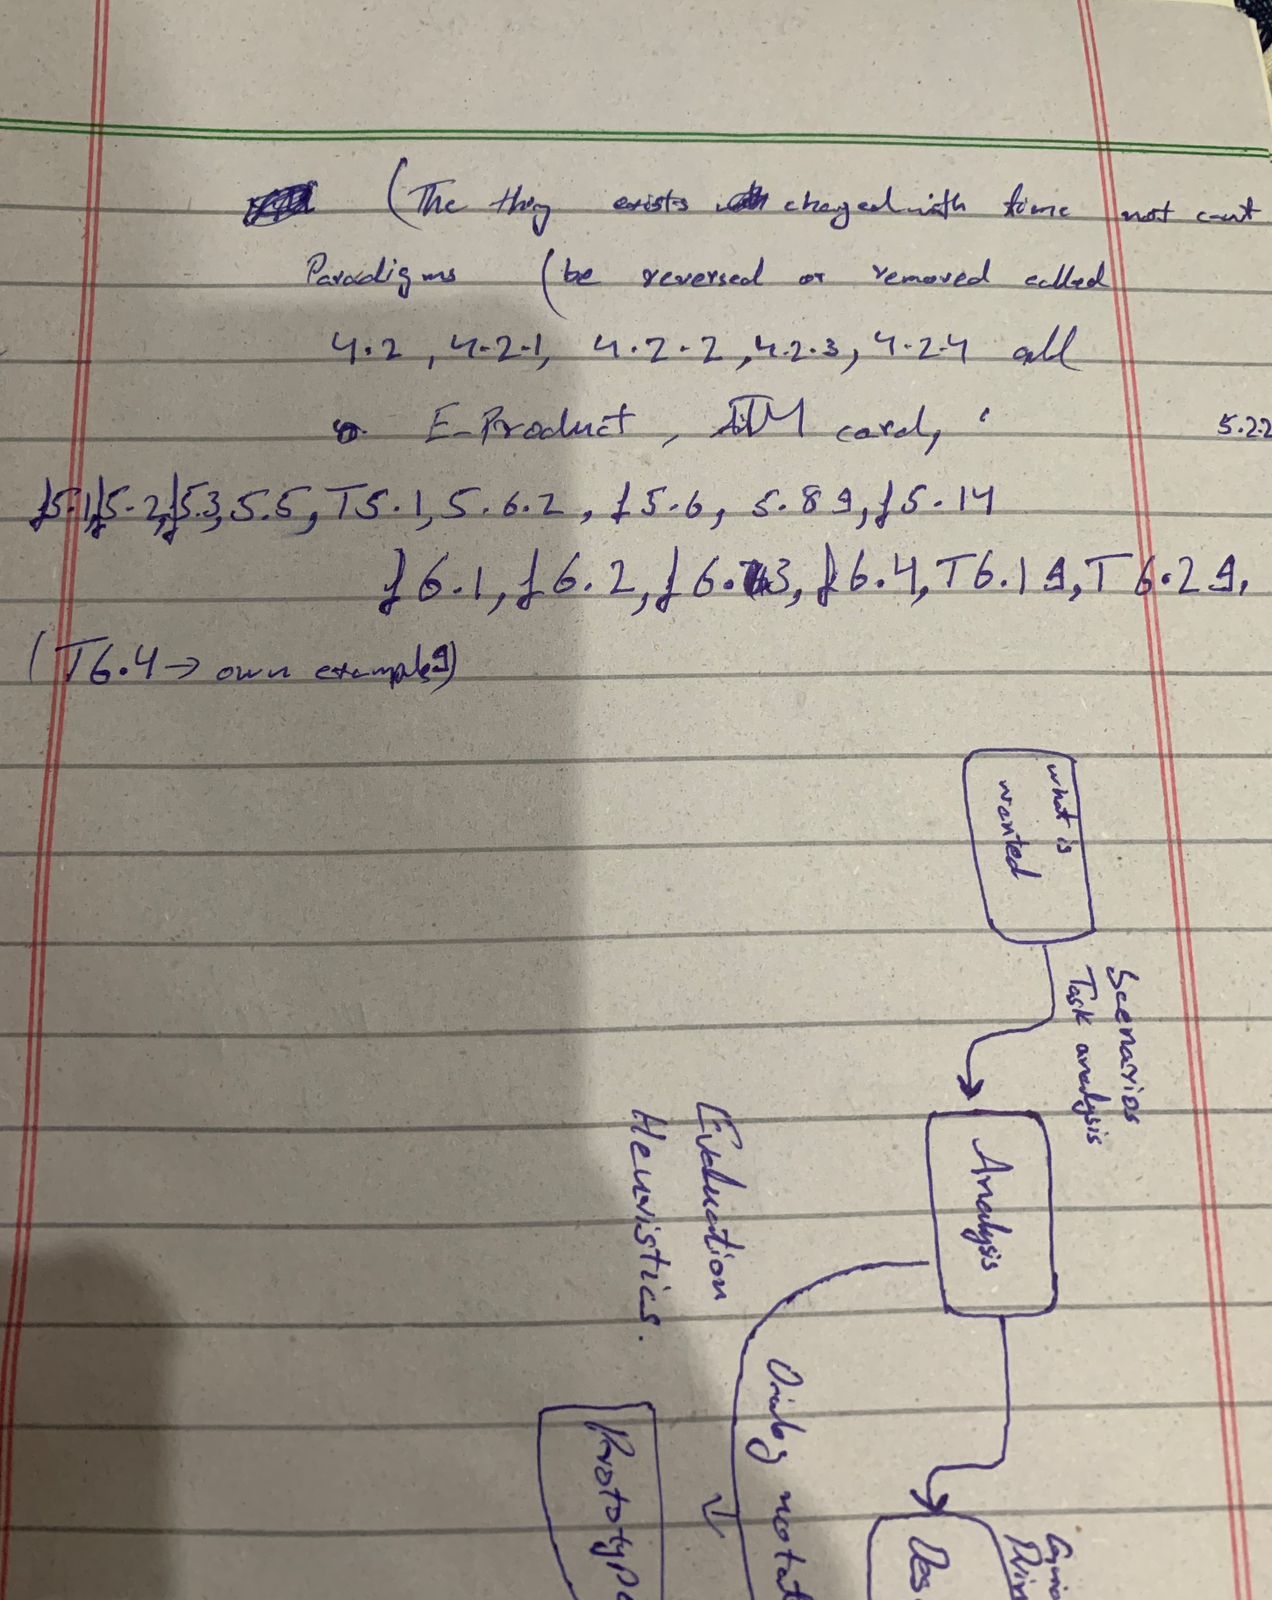 (The thing exists changed with time not cant
Paradigms (be reversed or removed called
4.2, 4.2.1, 4.2.2, 4.2.3, 4.2.4 all
E-Product, ATM card,
5.2.2
f5.1, f5.2, f5.3, 5.5, T5.1, 5.6.2, f5.6, 5.8 9, f5.14
f6.1, f6.2, f6.3, f6.4, T6.1 9, T6.2 9,
(T6.4 → own example 9)
what is
wanted
Scenarios
Task analysis
Analysis
Evaluation
Heuristics.
Dialog notat
Prototype
Des